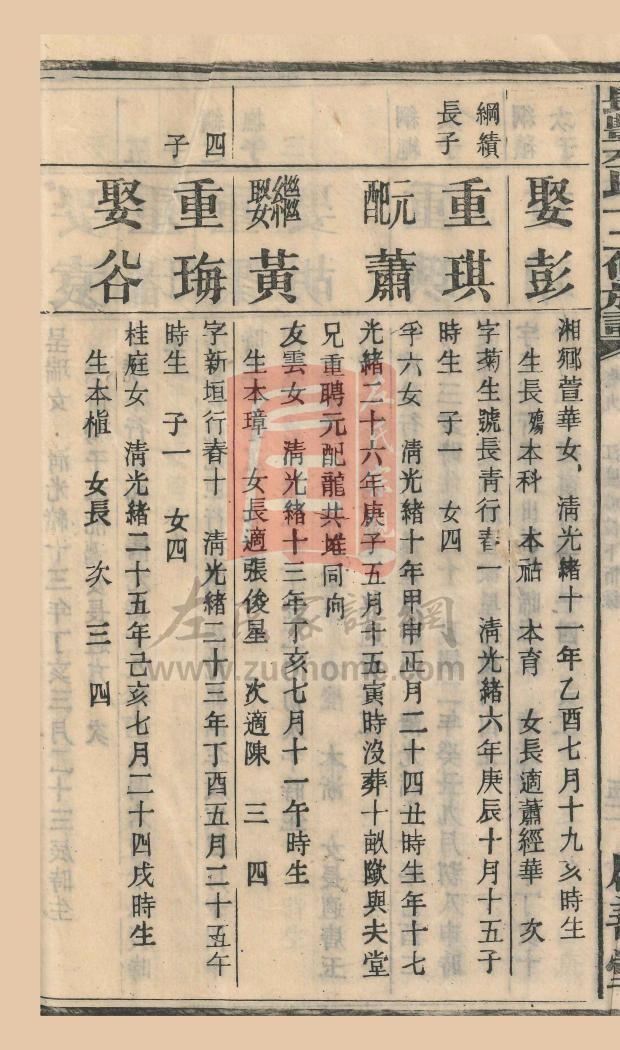 娶彭
湘鄉萱華女清光緒十一年乙酉七月十九亥時生
生長殤本科 本祜 本育 女長適蕭經華 次
綱績
長子
重琪
字菊生號長青行春一 清光緒六年庚辰十月十五子
時生 子一 女四
元配蕭
孚六女 清光緒十年甲申正月二十四丑時生年十七
光緒二十六年庚子五月十五寅時沒葬十畝歐與夫堂
兄重聘元配龍共堆同向
繼娶黃
友雲女 清光緒十三年丁亥七月十一午時生
生本璋 女長適張俊星 次適陳 三 四
四
子
重珻
字新垣行春十 清光緒二十三年丁酉五月二十五午
時生 子一 女四
娶谷
桂庭女 清光緒二十五年己亥七月二十四戌時生
生本植 女長 次 三 四
左氏家譜網
www.zuohome.com